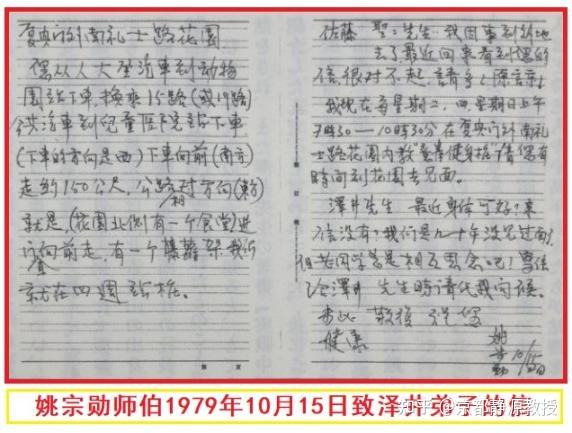 复兴门外南礼士路花园
您从人大坐汽车到动物
园站下车,换乘15路(或19路)
公共汽车到儿童医院站下车
(下车的方向是西)下车向前(南方)
走约150公尺,公路对方向(東)
就是,(花园北侧有一个食堂)进
门向前走,有一个藤萝架我们
就在四週站桩。
佐藤 聖二先生:我因事到外地
去了,最近回来看到您的
信,很对不起,請多多原諒!
我现在每星期二、四、星期日上午
7時30—10時30分在复兴门外南礼
士路花园内教"養生健身桩"請您有
時间到花园去见面。
澤井先生 最近身体可好?来
信没有?我们是几十年没见过面了
但老同学总是相互思念吧!寫信
给澤井 先生時請代我问候。
专此 敬複 祝您
健康 姚
宗
勋
10/15
姚宗勋师伯1979年10月15日致泽井弟子的信
知乎 @京都静源教授